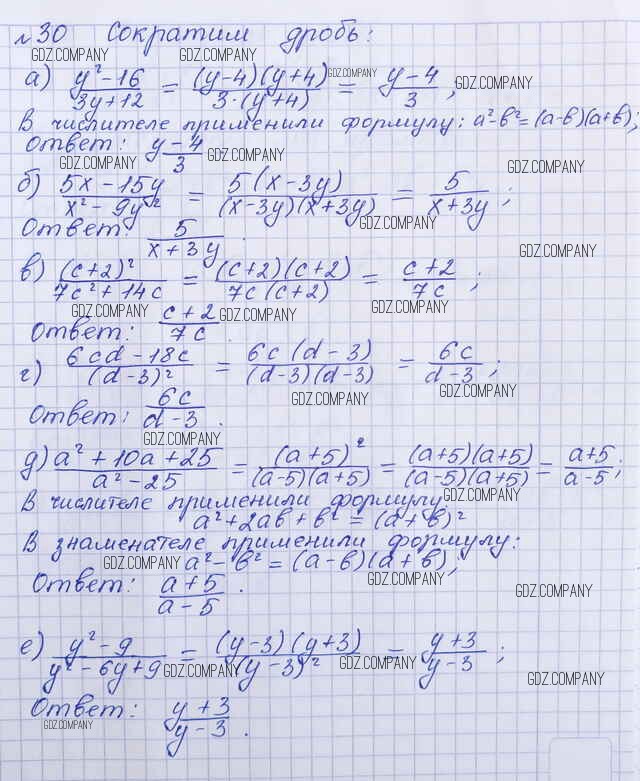 №30 Сократим дробь:
GDZ.COMPANY GDZ.COMPANY
а) (y²-16)/(3y+12) = ((y-4)(y+4))/(3·(y+4)) = (y-4)/3 ;
GDZ.COMPANY GDZ.COMPANY
В числителе применили формулу: a²-b²=(a-b)(a+b);
Ответ: (y-4)/3 .
GDZ.COMPANY GDZ.COMPANY GDZ.COMPANY
б) (5x-15y)/(x²-9y²) = (5(x-3y))/((x-3y)(x+3y)) = 5/(x+3y) ;
GDZ.COMPANY
Ответ: 5/(x+3y) .
GDZ.COMPANY
в) (c+2)²/(7c²+14c) = ((c+2)(c+2))/(7c(c+2)) = (c+2)/(7c) ;
GDZ.COMPANY GDZ.COMPANY GDZ.COMPANY
Ответ: (c+2)/(7c) .
г) (6cd-18c)/(d-3)² = (6c(d-3))/((d-3)(d-3)) = 6c/(d-3) ;
GDZ.COMPANY GDZ.COMPANY
Ответ: 6c/(d-3) .
GDZ.COMPANY
д) (a²+10a+25)/(a²-25) = (a+5)²/((a-5)(a+5)) = ((a+5)(a+5))/((a-5)(a+5)) = (a+5)/(a-5) ;
В числителе применили формулу
GDZ.COMPANY
a²+2ab+b²=(a+b)²
В знаменателе применили формулу:
GDZ.COMPANY
a²-b²=(a-b)(a+b);
GDZ.COMPANY GDZ.COMPANY
Ответ: (a+5)/(a-5) .
е) (y²-9)/(y²-6y+9) = ((y-3)(y+3))/(y-3)² = (y+3)/(y-3) ;
GDZ.COMPANY GDZ.COMPANY GDZ.COMPANY
Ответ: (y+3)/(y-3) .
GDZ.COMPANY